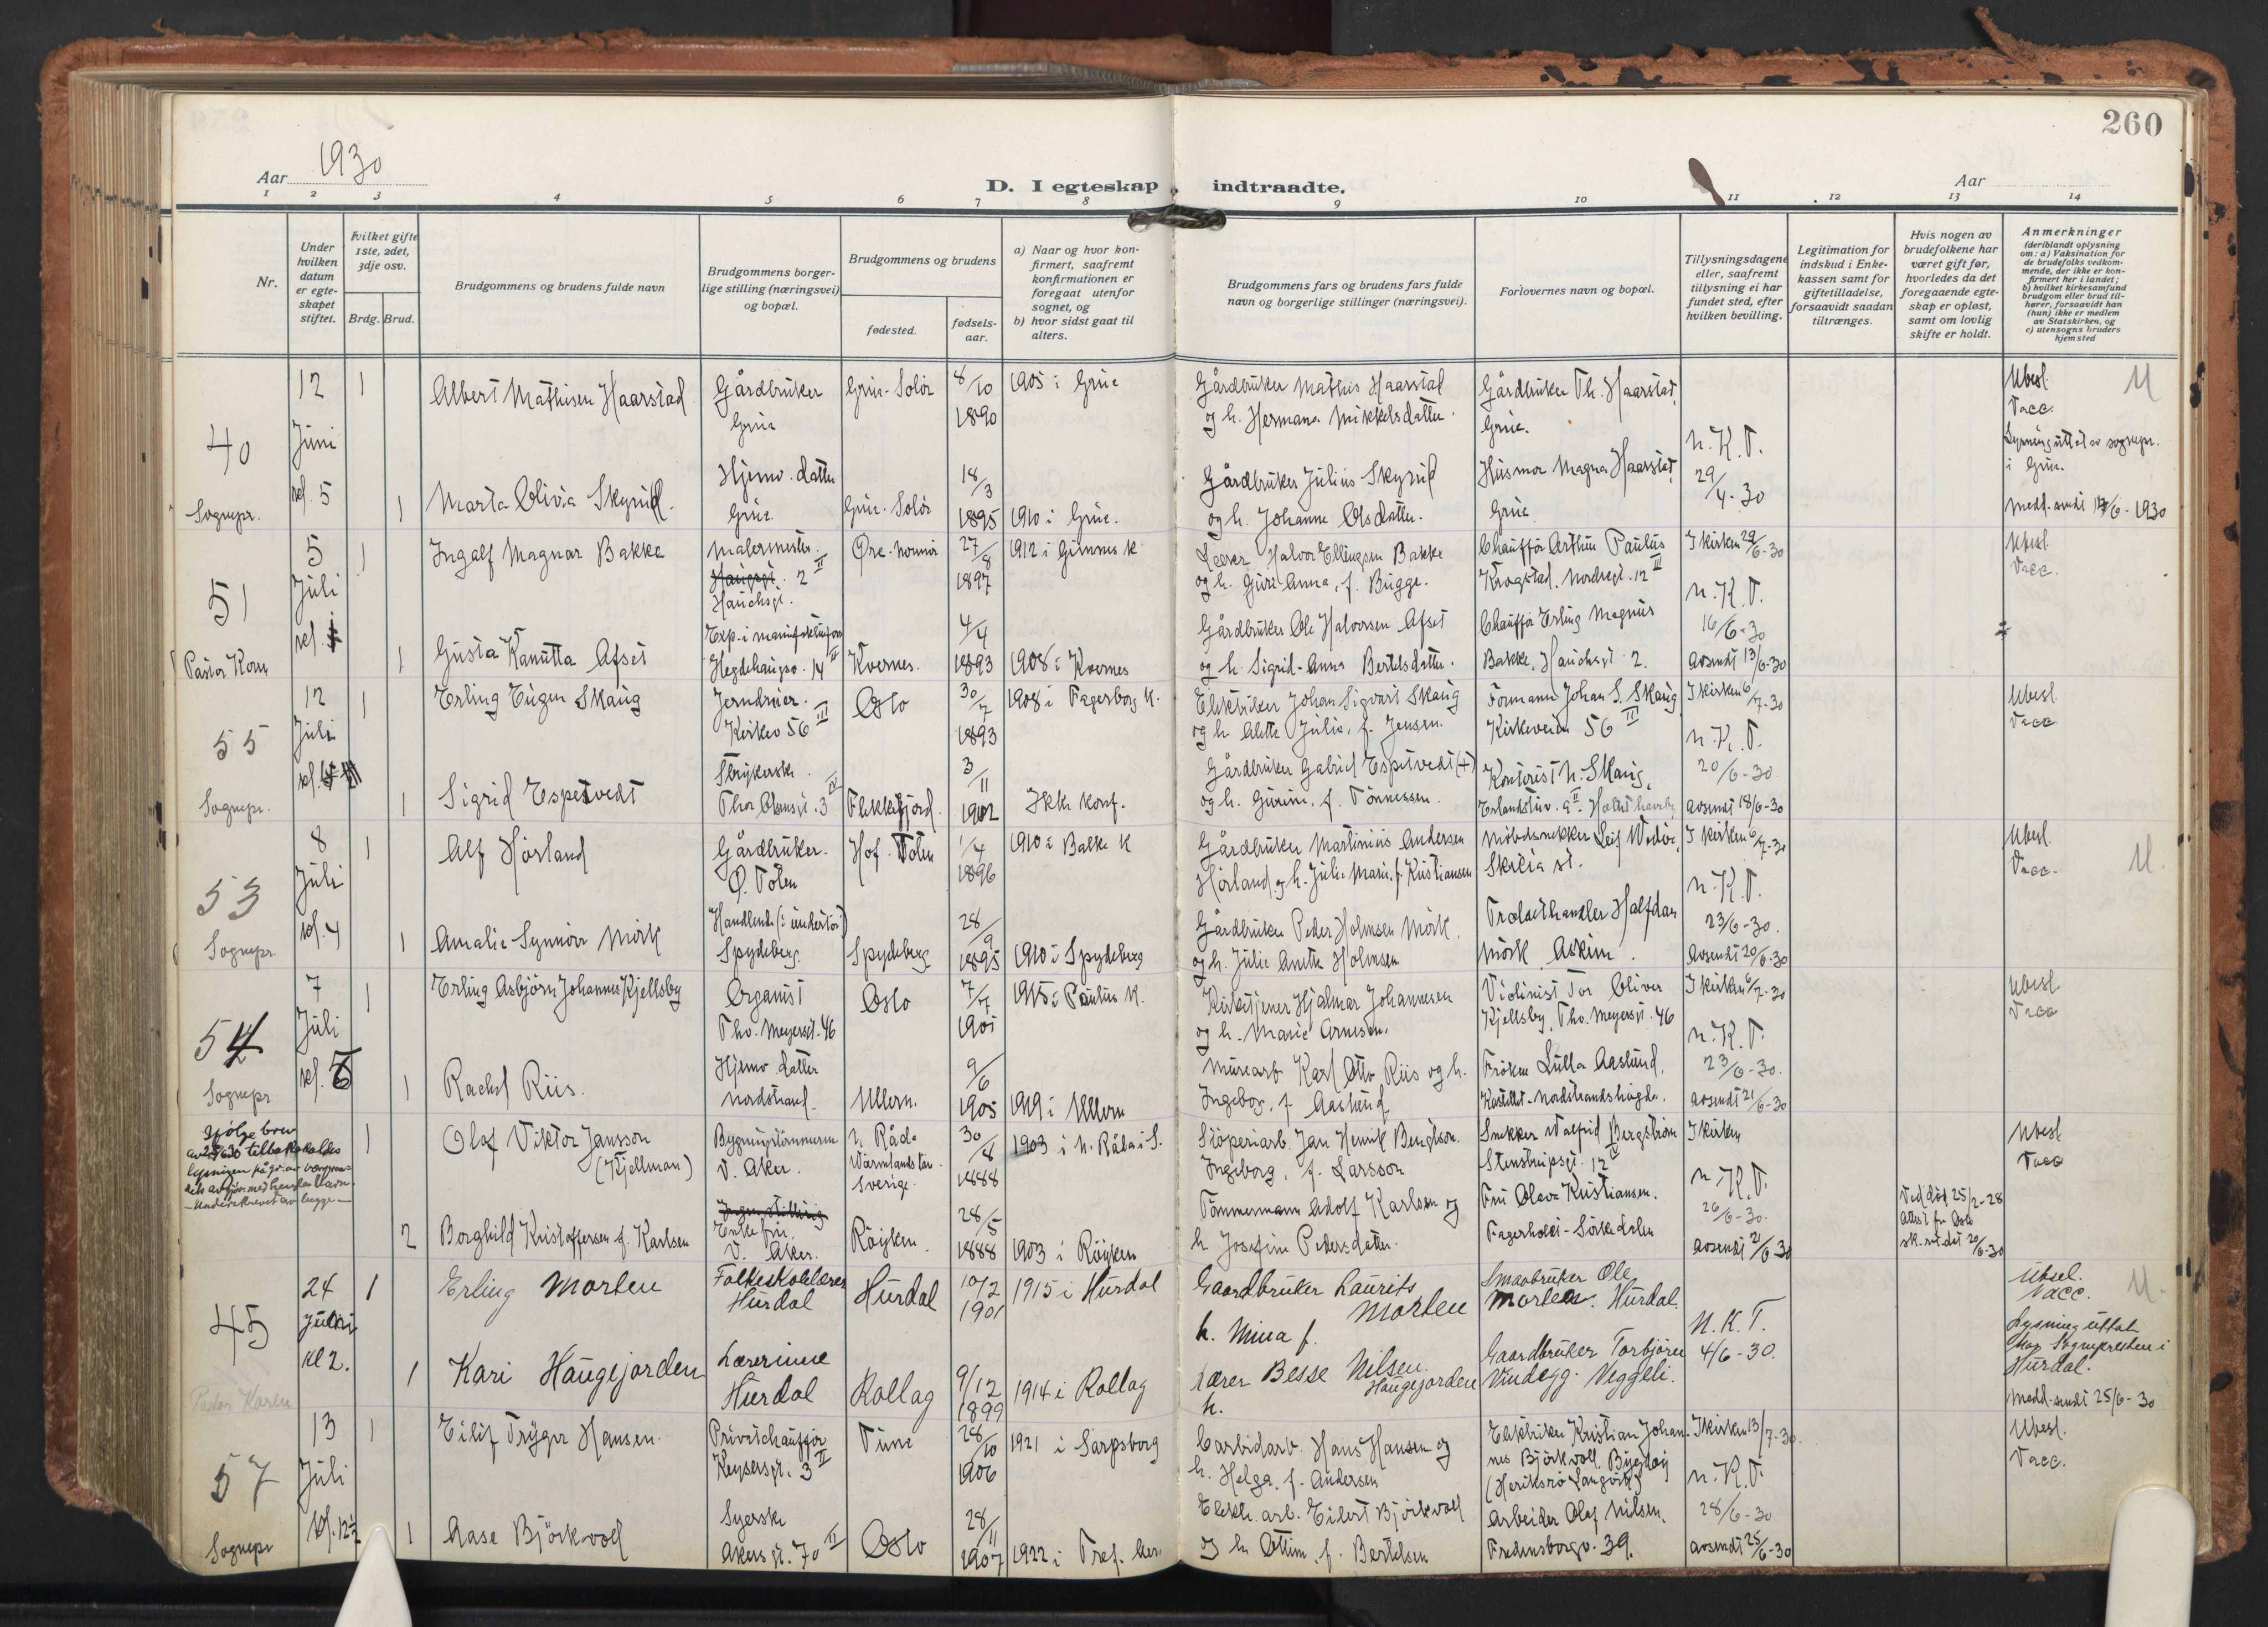 260
Aar 1930
D. I egteskap indtraadte.
Aar
1 2 3 4 5 6 7 8 9 10 11 12 13 14
Nr.
Under hvilken datum er egteskapet stiftet.
hvilket gifte 1ste, 2det, 3dje osv.
Brdg. Brud.
Brudgommens og brudens fulde navn
Brudgommens borgerlige stilling (næringsvei) og bopæl.
Brudgommens og brudens
fødested.
fødselsaar.
a) Naar og hvor konfirmert, saafremt konfirmationen er foregaat utenfor sognet, og
b) hvor sidst gaat til alters.
Brudgommens fars og brudens fars fulde navn og borgerlige stillinger (næringsvei).
Forlovernes navn og bopæl.
Tillysningsdagene eller, saafremt tillysning ei har fundet sted, efter hvilken bevilling.
Legitimation for indskud i Enkekassen samt for giftetilladelse, forsaavidt saadan tiltrænges.
Hvis nogen av brudefolkene har været gift før, hvorledes da det foregaaende egteskap er opløst, samt om lovlig skifte er holdt.
Anmerkninger
(deriblandt oplysning om: a) Vaksination for de brudefolks vedkommende, der ikke er konfirmert her i landet; b) hvilket kirkesamfund brudgom eller brud tilhører, forsaavidt han (hun) ikke er medlem av Statskirken, og c) utensogns bruders hjemsted
40 Sognepr.
12 Juni kl. 5
1 Albert Mathisen Haarstad
Gårdbruker Grue
Grue-Solør
8/10 1890
1905 i Grue
Gårdbruker Mathis Haarstad
og h. Hermana Mikkelsdatter.
Gårdbruker Th. Haarstad, Grue.
n.K.T. 29/4-30
Ubesl. Vacc. U
Lysning uttat av sognepr. i Grue.
1 Marta Olivia Skyrud.
Hjemv. datter Grue.
Grue-Solør
18/3 1895
1910 i Grue.
Gårdbruker Julius Skyrud
og h. Johanne Olsdatter.
Husmor Magna Haarstad, Grue
Medd. sendt 14/6-1930
51 Pastor Koren
5 Juli kl.
1 Ingolf Magnar Bakke
Malermester.
2 II Hauchsgt.
Øre-Nordmør
27/8 1897
1912 i Gimnes k
Lærer Halvor Ellingsen Bakke
og h. Guri Anna, f. Bugge.
Chauffør Arthur Paulus
Krogstad. Nordregt. 12 III
I kirken 29/6-30
n.K.T. 16/6-30
Avsendt 13/6-30
Ubesl. Vacc.
1 Gusta Kanutta Afset
Exp. i manufakturforr
Hegdehaugsv. 14 III
Kvernes.
4/4 1893
1908 i Kvernes
Gårdbruker Ole Halvorsen Afset
og h. Sigrid-Anna Bertelsdatter.
Chauffør Erling Magnus
Bakke, Hauchsgt 2.
55 Sognepr.
12 Juli
1 Erling Eugen Skaug
Jerndreier.
Kirkev 56 III
Oslo
30/7 1893
1908 i Fagerborg k.
Elektriker Johan Sigvart Skaug
og h Alette Julie, f. Jensen.
Formann Johan S. Skaug
Kirkeveien 56 II
I kirken 6/7-30
n.K.T. 20/6-30
Avsendt 18/6-30
Ubesl. Vacc
1 Sigrid Espetvedt
Strykerske.
Thor Olsensgt. 3 IV
Flekkefjord.
3/11 1902
Ikke konf.
Gårdbruker Gabriel Espetvedt (+)
og h. Gurine, f. Tønnessen.
Kontorist N. Skaug,
53 Sognepr
8 Juli kl. 4
1 Alf Hørland
Gårdbruker.
Ø. Toten
Hof. Toten
1/4 1896
1910 i Balke k
Gårdbruker Martinius Andersen
Hørland og h. Julie Marie, f. Kristiansen
Møbelsnekker Leif Wedøe,
Skreia st.
I kirken 6/7-30
n.K.T. 23/6-30.
Avsendt 20/6-30
Ubesl. Vacc. U.
1 Amalie Synnøve Mørk
Spydeberg
Spydeberg
28/9 1895
1910 i Spydeberg
Gårdbruker Peder Holmsen Mørk.
og h. Julie Anette Holmsen
Trelasthandler Halfdan
Mørk Askim.
54 Sognepr
7 Juli kl. 6
1 Erling Asbjørn Johannes Kjellsby
Organist
Thv. Meyersgt. 46
Oslo
7/7 1901
1915 i Paulus k.
Kirketjener Hjalmar Johannesen
og h. Marie Arnesen.
Violinist Tor Oliver
Kjellsby, Thv. Meyersgt. 46
I kirken 6/7-30
n.K.T. 23/6-30.
Avsendt 21/6-30
Ubesl Vacc
1 Rachel Riis.
Hjemv datter
Nordstrand.
Ullern.
9/6 1905
1919 i Ullern
Murearb Karl Otto Riis og h.
Ingeborg, f. Aaslund
Frøken Lulla Aaslund,
Kastellet-Nordstrandshøgda.
Ifølge brev
av 28/6 30 tilbakekaldes
lysningen på gr. av
1 Olof Viktor Jansson
(Kjellman)
Bygningstømmerm.
V. Aker.
N. Råda
Värmlands län.
Sverige.
30/8 1888
1903 i N. Råda i S.
Jan Henrik Bengtson.
Ingeborg, f. Larsson
Snekker Walfrid Bergstrøm
Stenstrupsgt. 12 IV
I kirken
n.K.T. 26/6-30.
Avsendt 21/6 30
Ubesl Vacc
2 Borghild Kristoffersen f. Karlsen
Enkefru.
V. Aker.
Røyken.
28/5 1888
1903 i Røyken
Tømmermann Adolf Karlsen og
h Josefine Pedersdatter.
Fru Olava Kristiansen.
Fagerholt-Sørkedalen
Ved død 25/2-28
Attest fra Oslo
sk.rett dat 20/6-30
45 Pastor Koren
24 juni kl 2.
1 Erling Morten
Folkeskolelærer
Hurdal
Hurdal
10/2 1901
1915 i Hurdal
Gaardbruker Laurits
Morten
h. Mina f.
Smaabruker Ole
Morten. Hurdal.
N.K.T. 4/6-30.
Ubsel. Vacc. U.
Lysning uttat
hos Sognepresten i
Hurdal.
1 Kari Haugejorden
Lærerinne
Hurdal
Rollag
9/12 1899
1914 i Rollag
Lærer Besse Nilsen
Haugejorden
h.
Gaardbruker Torbjørn
Vindegg. Veggli.
Medd. sendt 25/6-30
57 Sognepr
13 Juli kl. 12½
1 Eilif Trygve Hansen.
Privatchauffør
Keysersgt. 3 II
Tune
28/10 1906
1921 i Sarpsborg
Carbidarb. Hans Hansen og
h. Helga, f. Andersen
Elektriker Kristian Johan-
nes Bjørkvoll, Bygdøy
I kirken 13/7-30.
n.K.T. 28/6-30
Avsendt 25/6-30
Ubesl. Vacc.
1 Aase Bjørkvoll
Syerske
Akersgt. 70 II
Oslo
28/11 1907
1922 i Tref. ker.
Elektr. arb. Eilert Bjørkvoll
og h. Ottine, f. Bertelsen
Arbeider Olaf Nilsen,
Fredensborgv. 39.